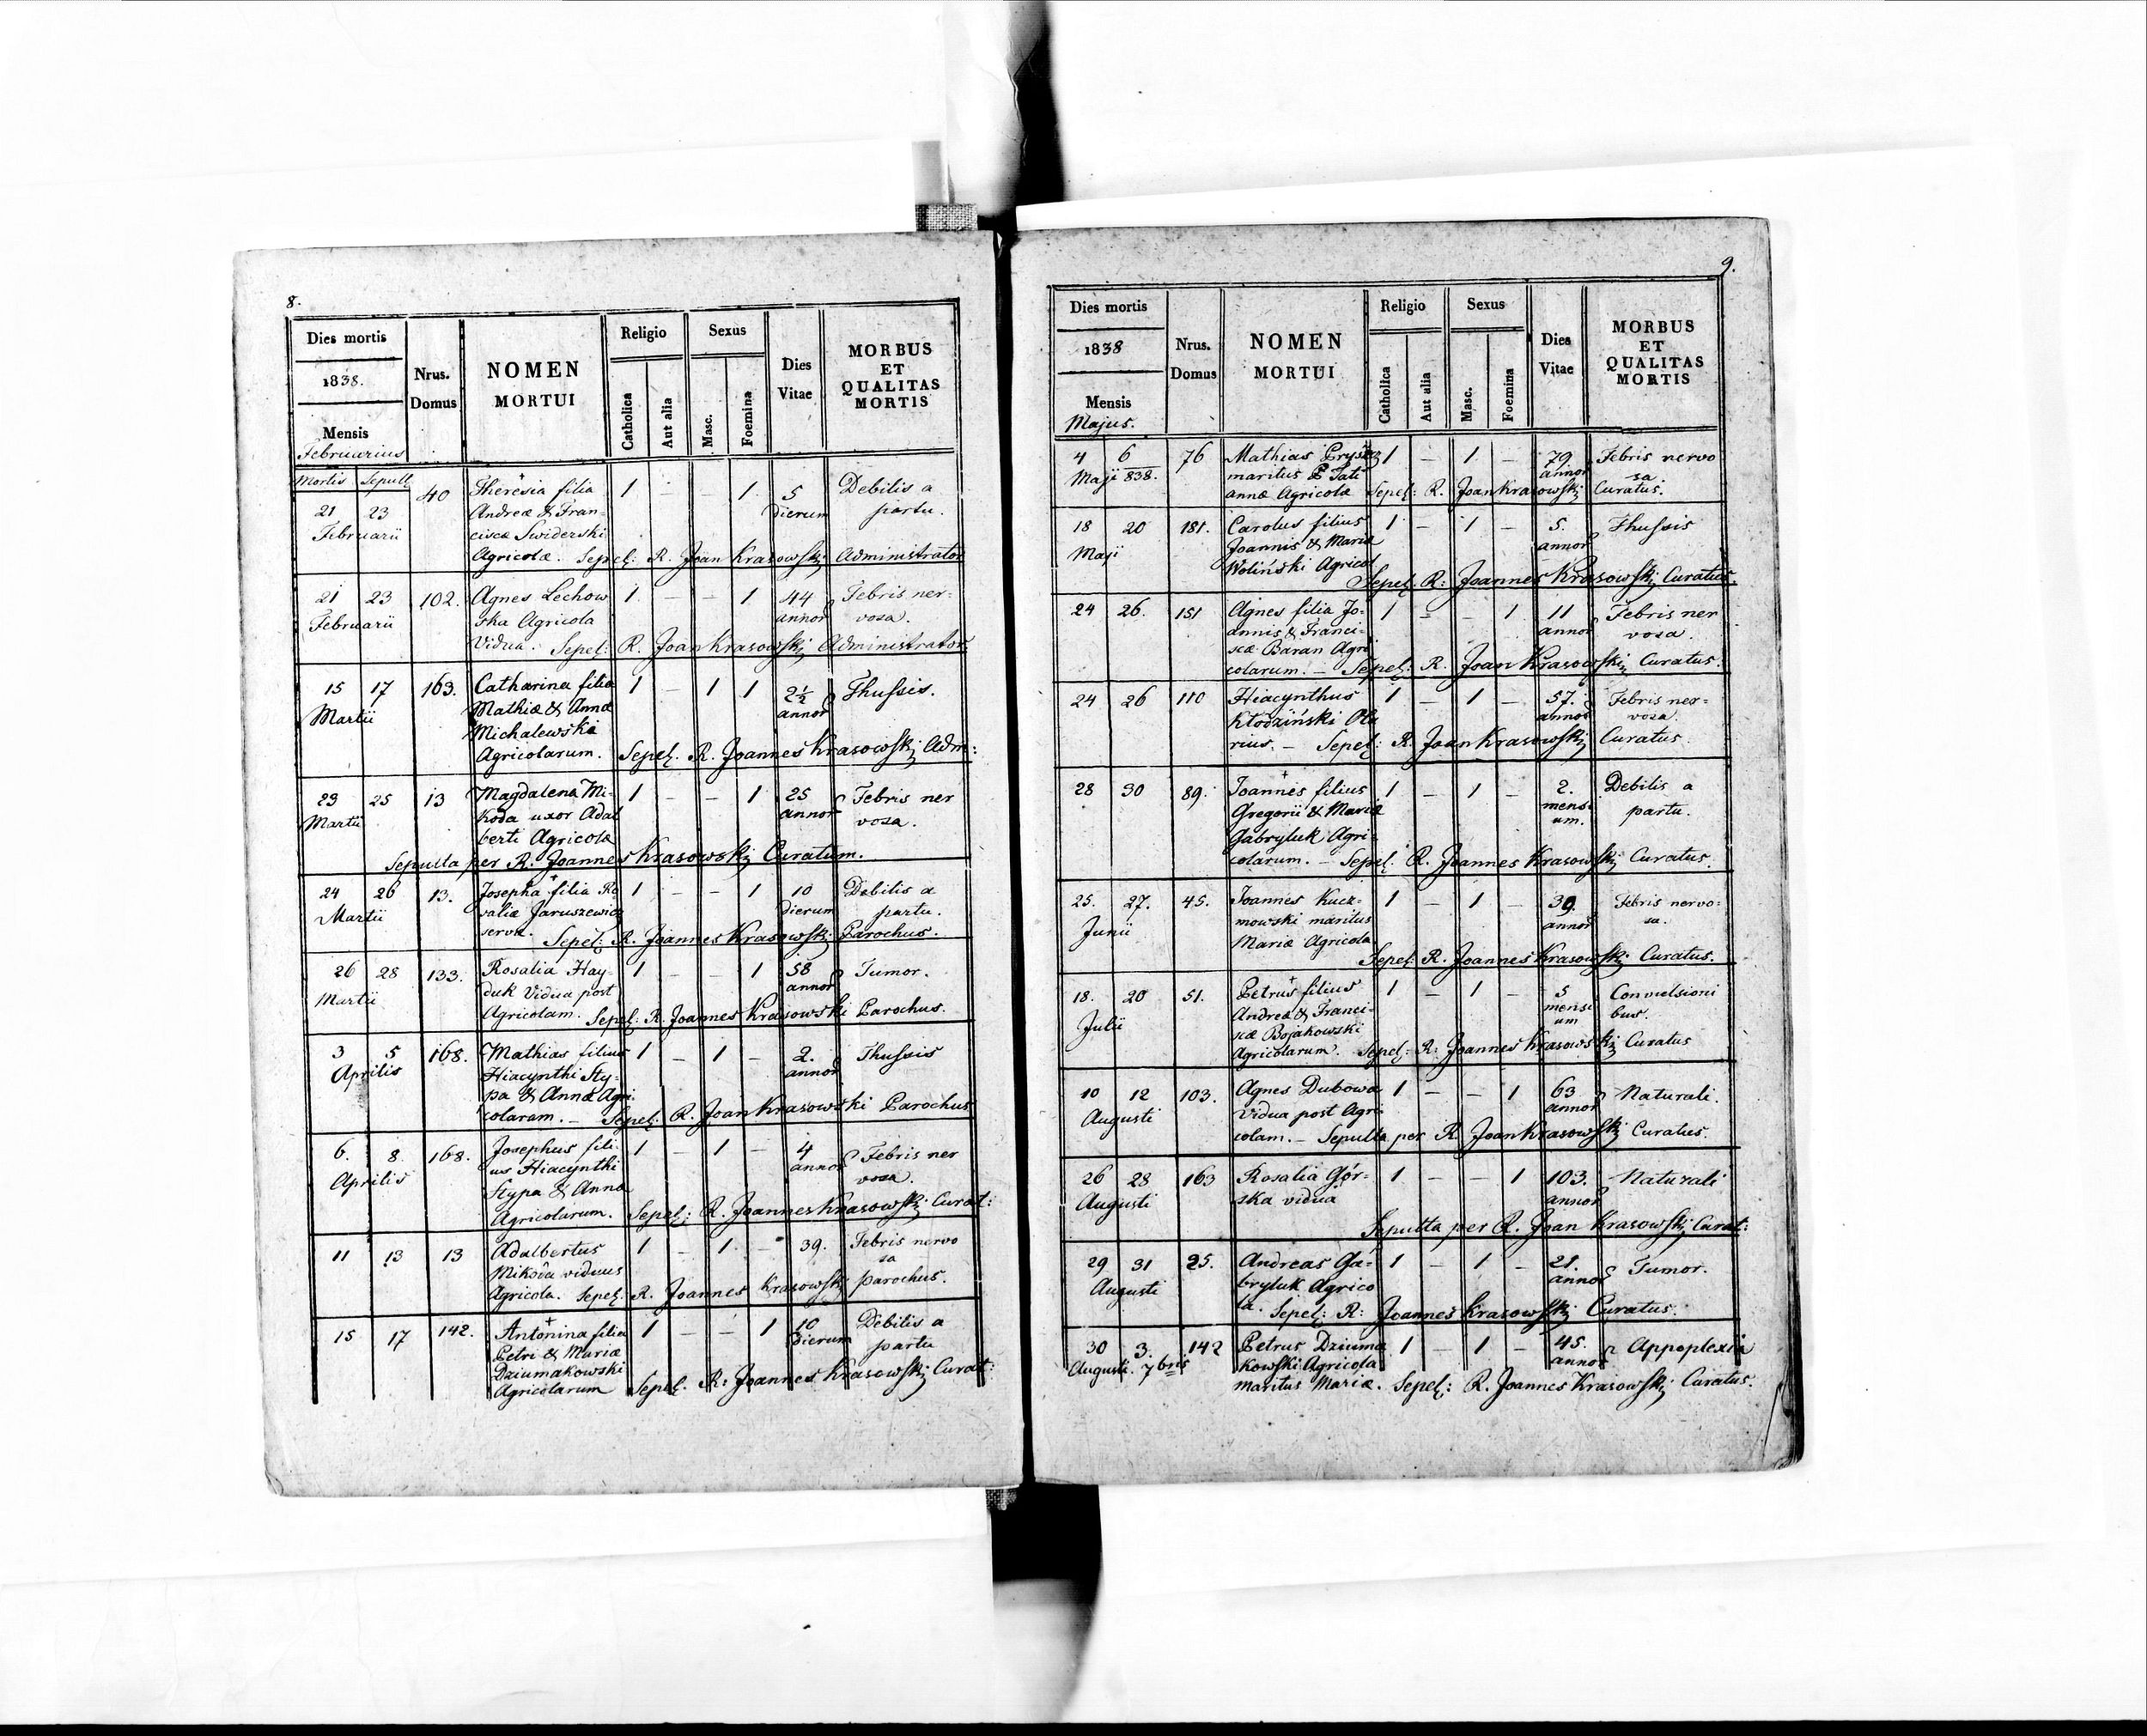 8.
Dies mortis
1838.
Mensis
Februarius
Nrus.
Domus
NOMEN
MORTUI
Religio
Catholica
Aut alia
Sexus
Masc.
Foemina
Dies
Vitae
MORBUS
ET
QUALITAS
MORTIS
Mortis Sepult
21 23 40 Theresia filia 1 - - 1 5 Debilis a
Februarii Andreæ & Fran- dierum partu.
ciscæ Swiderski
Agricolæ. Sepel: R. Joan Krasowski Administrator
21 23 102. Agnes Lechow 1 - - 1 44 Febris ner-
Februarii ska Agricola annor vosa.
Vidua. Sepel: R. Joan Krasowski Administrator
15 17 163. Catharina filia 1 - 1 1 2½ Thussis.
Martii Mathiæ & Annæ annor
Michalewski
Agricolarum. Sepel. R. Joannes Krasowski Adm:
23 25 13 Magdalena Mi- 1 - - 1 25 Febris ner
Martii koda uxor Adal annor vosa.
berti Agricolæ
Sepulta per R. Joannes Krasowski Curatum.
24 26 13. Josepha filia Ro 1 - - 1 10 Debilis a
Martii saliæ Jaruszewicz dierum partu.
servæ. Sepel: R. Joannes Krasowski Parochus.
26 28 133. Rosalia Hay- 1 - - 1 58 Tumor.
Martii duk Vidua post annor
Agricolam. Sepel: R. Joannes Krasowski Parochus.
3 5 168. Mathias filius 1 - 1 - 2. Thussis
Aprilis Hiacynthi Sty- annor
pa & Annæ Agri-
colaram. - Sepel. R. Joan Krasowski Parochus
6. 8. 168. Josephus fili- 1 - 1 - 4 Febris ner
Aprilis us Hiacynthi annor vosa.
Stypa & Anna
Agricolarum. Sepel: R. Joannes Krasowski Curat:
11 13 13 Adalbertus 1 - 1. - 39. Febris nervo
Mikoda viduus sa
Agricola. Sepel. R. Joannes Krasowski parochus.
15 17 142. Antonina filia 1 - - 1 10 Debilis a
Petri & Mariæ dierum partu
Dziumakowski
Agricolarum Sepel. R: Joannes Krasowski Curat:
9.
Dies mortis
1838
Mensis
Majus.
Nrus.
Domus
NOMEN
MORTUI
Religio
Catholica
Aut alia
Sexus
Masc.
Foemina
Dies
Vitae
MORBUS
ET
QUALITAS
MORTIS
4 6 76 Mathias 1 - 1 - 79 Febris nervo
Maji 838. maritus Tati annor sa.
annæ Agricola Sepel: R. Joan Krasowski Curatus.
18 20 181. Carolus filius 1 - 1 - 5. Thussis
Maji Joannis & Mariæ annor
Woliński Agrico
Sepel. R: Joannes Krasowski Curatus.
24 26. 151 Agnes filia Jo- 1 - - 1 11 Febris ner
annis & Franci- annor vosa.
scæ Baran Agri
colarum. - Sepel: R. Joan Krasowski Curatus.
24 26 110 Hiacynthus 1 - 1 - 57. Febris ner-
Kłodziński annor vosa.
rius. - Sepel: R. Joan Krasowski Curatus.
28 30 89. Joannes filius 1 - 1 - 2. Debilis a
Gregorii & Mariæ mensi partu.
Gabryluk Agri- um.
colarum. - Sepel. R. Joannes Krasowski Curatus.
25. 27. 45. Joannes Kucz- 1 - 1 - 39. Febris nervo-
Junii mowski maritus annor sa.
Mariæ Agricola
Sepel: R. Joannes Krasowski Curatus.
18. 20 51. Petrus filius 1 - 1 - 5 Convulsioni
Julii Andreæ & Franci- mensi bus.
scæ Bojakowski um
Agricolarum. Sepel: R: Joannes Krasowski Curatus
10 12 103. Agnes Dubowa 1 - - 1 63 Naturali.
Augusti Vidua post Agri- annor
colam. - Sepulta per R. Joan Krasowski Curatus.
26 28 163 Rosalia Gór- 1 - - 1 103. Naturali
Augusti ska vidua annor
Sepulta per R. Joan Krasowski Curat:
29 31 25. Andreas Ga- 1 - 1 - 21. Tumor.
Augusti bryluk Agrico annor
la. Sepel: R: Joannes Krasowski Curatus.
30 3. 142 Petrus Dziuma 1 - 1 - 45. Appoplexia
Augusti. 7bris kowski Agricola annor
maritus Mariæ. Sepel: R. Joannes Krasowski Curatus.